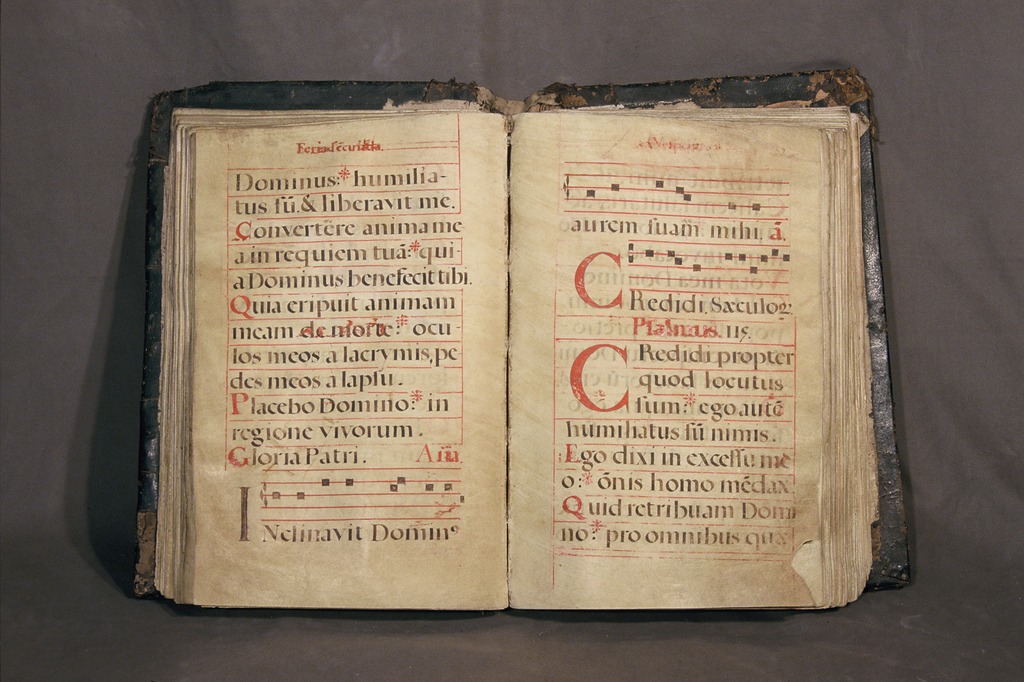 Feria secunda.
Dominus:* humilia-
tus sū. & liberavit me.
Convertere anima me
a in requiem tuā:* qui-
a Dominus benefecit tibi.
Quia eripuit animam
meam de morte:* ocu-
los meos a lacrymis, pe
des meos a lapsu.
Placebo Domino:* in
regione vivorum.
Gloria Patri. Aña
INclinavit Dominꝰ
aurem suam mihi. ā.
CRedidi. Sæculoꝝ.
Psalmus. 115.
CRedidi propter
quod locutus
sum:* ego autē
humiliatus sū nimis.
Ego dixi in excessu me
o:* ōnis homo mēdax
Quid retribuam Domi
no:* pro omnibus quæ